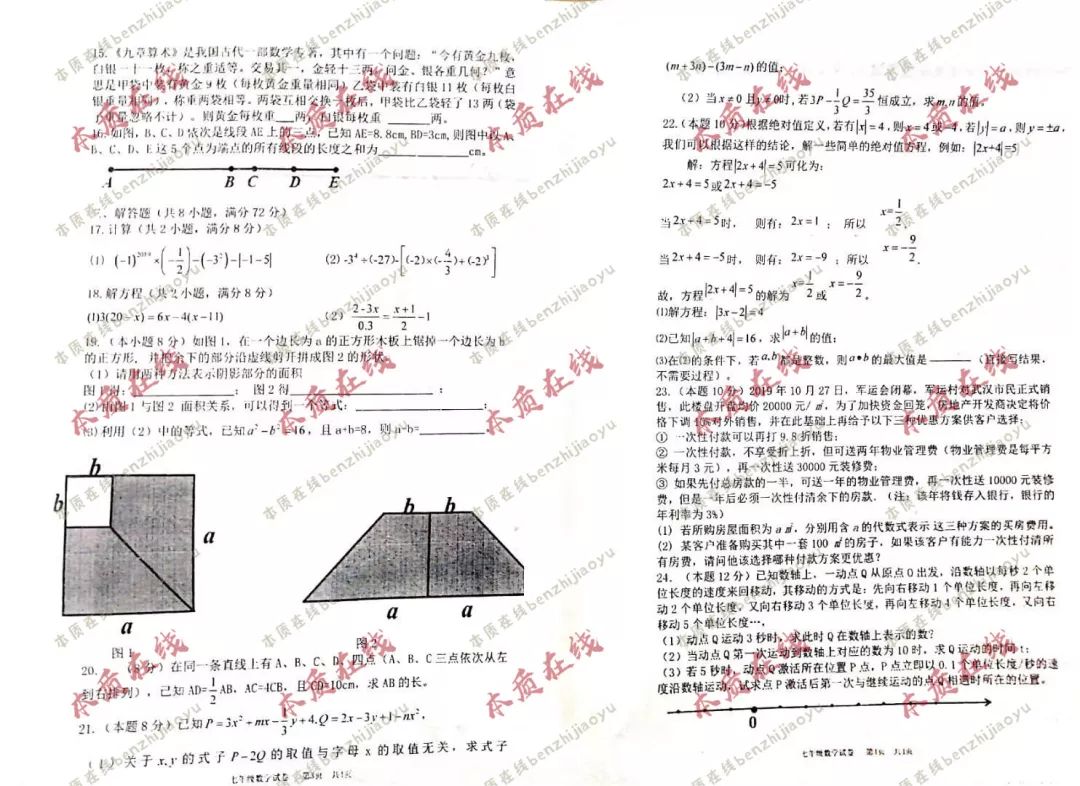 15.《九章算术》是我国古代一部数学专著，其中有一个问题："今有黄金九枚，
白银一十一枚，称之重适等。交易其一，金轻十三两，问金、银各重几何？"意
思是甲袋中装有黄金9枚（每枚黄金重量相同），乙袋中装有白银11枚（每枚白
银重量相同），称重两袋相等。两袋互相交换一枚后，甲袋比乙袋轻了13两（袋
子重量忽略不计）。则黄金每枚重___两，白银每枚重___两。
16.如图，B、C、D依次是线段AE上的三点，已知AE=8.8cm，BD=3cm，则图中以A、
B、C、D、E这5个点为端点的所有线段的长度之和为________cm。
A B C D E
三、解答题（共8小题，满分72分）
17.计算（共2小题，满分8分）
18.解方程（共2小题，满分8分）
(1)3(20-x)=6x-4(x-11) (2) (2-3x)/0.3=(x+1)/2-1
19.（本小题8分）如图1，在一个边长为a的正方形木板上锯掉一个边长为b
的正方形，并把余下的部分沿虚线剪开拼成图2的形状。
(1)请用两种方法表示阴影部分的面积
图1得：________； 图2得________；
(2)由图1与图2 面积关系，可以得到一个等式：________；
(3)利用（2）中的等式，已知a²-b²=16，且a+b=8，则a-b=________
b
b
a
a
图1
b b
a a
图2
20. （8分）在同一条直线上有A、B、C、D、四点（A、B、C三点依次从左
到右排列），已知AD=1/2AB，AC=4CB，且CD=10cm，求AB的长。
21.（本题8分）已知P=3x²+mx-1/3y+4,Q=2x-3y+1-nx²，
(1)关于x,y的式子P-2Q的取值与字母x的取值无关，求式子
七年级数学试卷 共1页
(m+3n)-(3m-n)的值；
(2)当x≠0且y≠0时，若3P-1/3Q=35/3恒成立，求m,n的值。
22.（本题10分）根据绝对值定义，若有|x|=4，则x=4或-4，若|y|=a，则y=±a，
我们可以根据这样的结论，解一些简单的绝对值方程，例如：|2x+4|=5
解：方程|2x+4|=5可化为：
2x+4=5或2x+4=-5
当2x+4=5时， 则有：2x=1 ； 所以 x=1/2.
当2x+4=-5时， 则有：2x=-9 ；所以 x=-9/2.
故，方程|2x+4|=5的解为x=1/2或x=-9/2。
(1)解方程：|3x-2|=4
(2)已知|a+b+4|=16，求|a+b|的值；
的条件下，若a,b都是整数，则a•b的最大值是______（直接写结果，
不需要过程）。
23.（本题10分）2019年10月27日，军运会闭幕，军运村对武汉市民正式销
售，此楼盘开盘均价20000元/㎡，为了加快资金回笼，房地产开发商决定将价
格下调10%对外销售，并在此基础上再给予以下三种优惠方案供客户选择：
① 一次性付款可以再打9.8折销售；
② 一次性付款，不享受折上折，但可送两年物业管理费（物业管理费是每平方
米每月3元），再一次性送30000元装修费；
③ 如果先付总房款的一半，可送一年的物业管理费，再一次性送10000元装修
费，但是一年后必须一次性付清余下的房款.（注：该年将钱存入银行，银行的
年利率为3%）
(1)若所购房屋面积为a㎡，分别用含a的代数式表示这三种方案的买房费用。
(2)某客户准备购买其中一套100㎡的房子，如果该客户有能力一次性付清所
有房费，请问他该选择哪种付款方案更优惠？
24.（本题12分）已知数轴上，一动点Q从原点O出发，沿数轴以每秒2个单
位长度的速度来回移动，其移动的方式是：先向右移动1个单位长度，再向左移
动2个单位长度，又向右移动3个单位长度，再向左移动4个单位长度，又向右
移动5个单位长度…，
(1)动点Q运动3秒时，求此时Q在数轴上表示的数？
(2)当动点Q第一次运动到数轴上对应的数为10时，求Q运动的时间t；
(3)若5秒时，动点Q激活所在位置P点，P点立即以0.1个单位长度/秒的速
度沿数轴运动，试求点P激活后第一次与继续运动的点Q相遇时所在的位置。
0
七年级数学试卷 共1页
本质在线
本质在线benzhijiaoyu